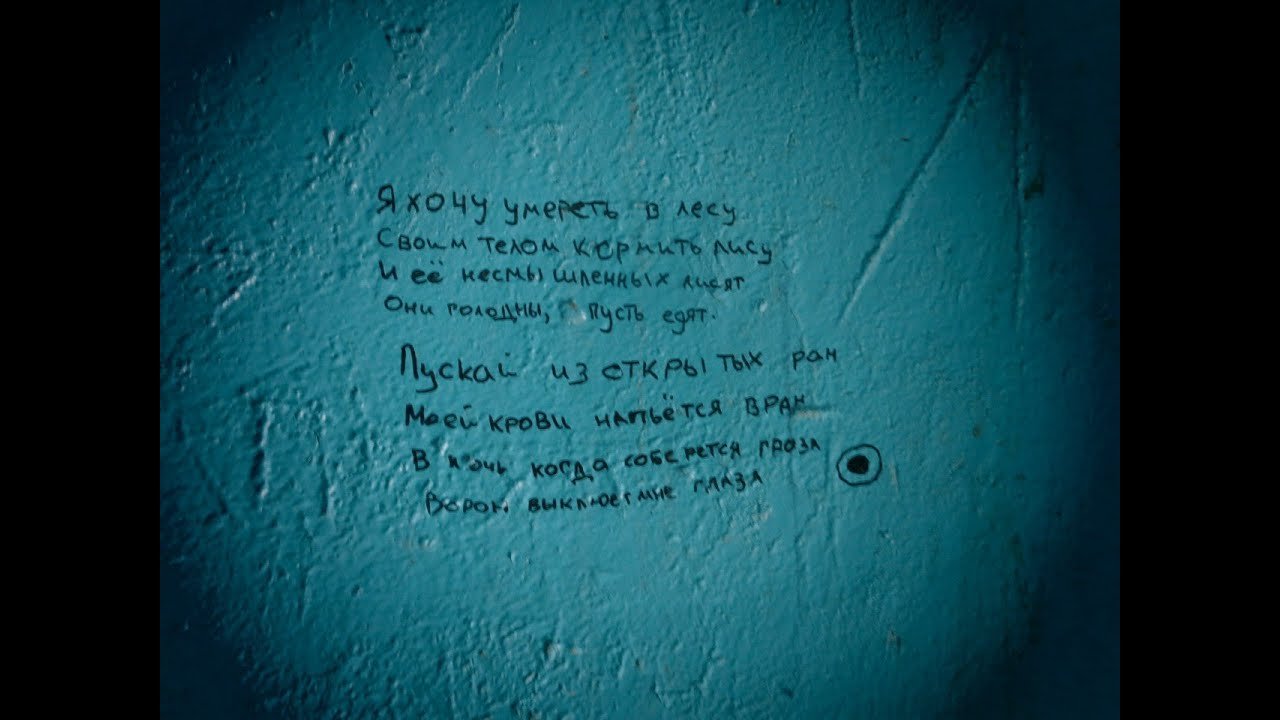 Я хочу умереть в лесу
Своим телом кормить лису
И её несмышленных лисят
Они голодны, пусть едят.
Пускай из открытых ран
Моей крови напьётся вран
В ночь когда соберется гроза
Ворон выклюет мне глаза